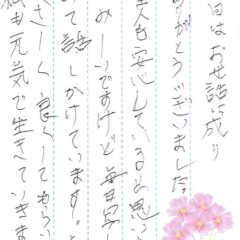 日はお世話に成り
ありがとうございました。
主人も安心していると思い
みしいですけど毎日写
て話しかけています。
さしく良くしてもらい
私も元気で生きていきま